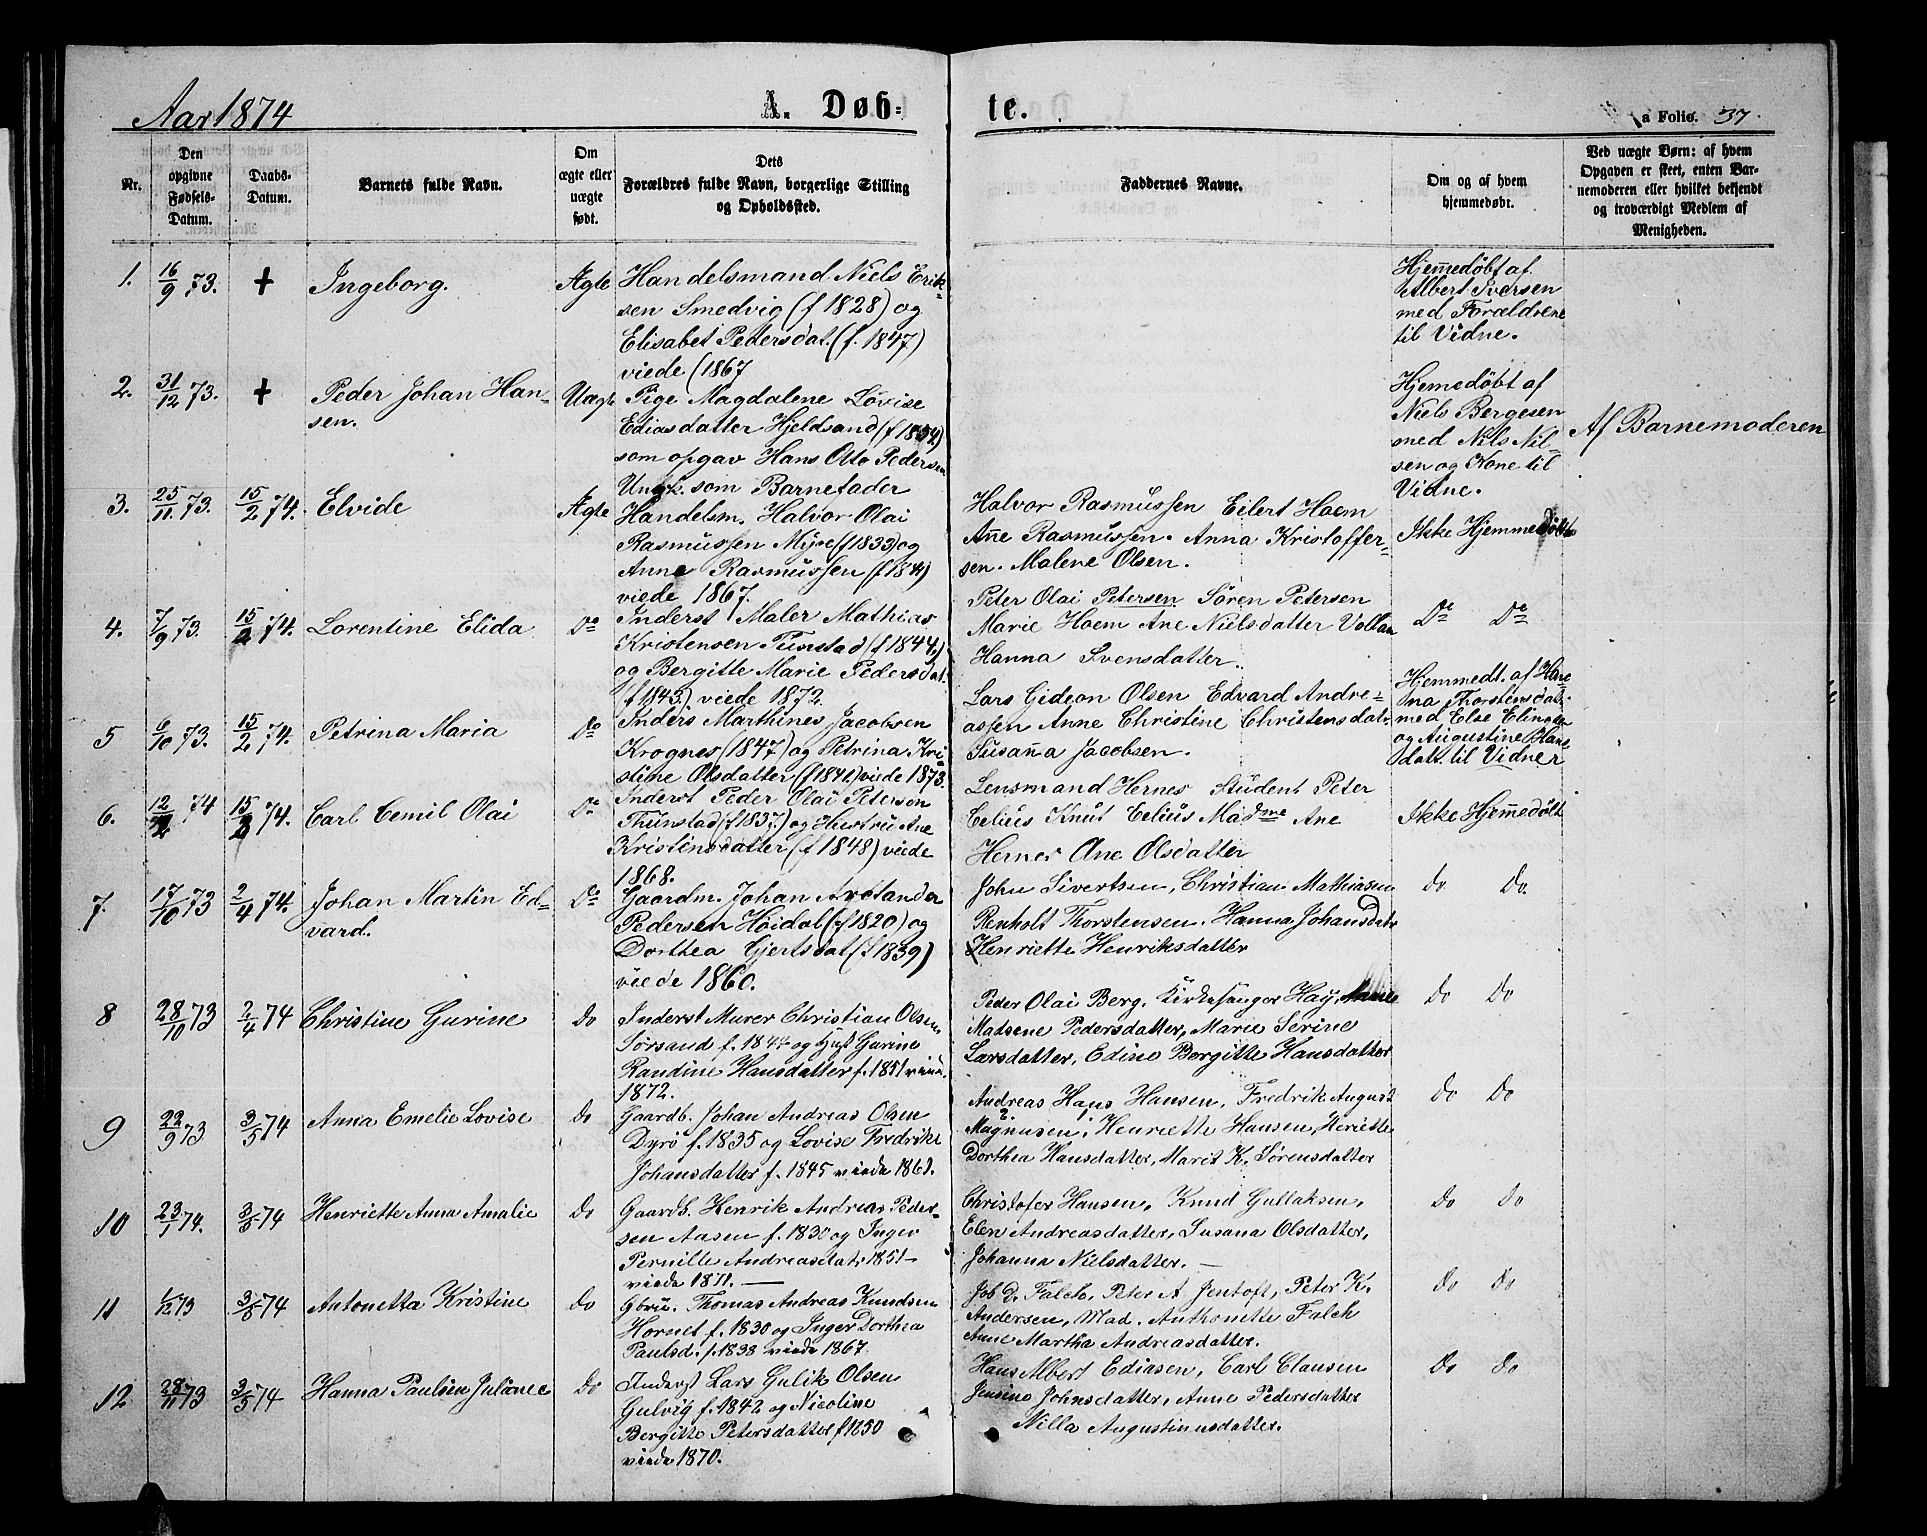 Aar 1874
A. Døb-
te.
a Folio. 37.
Nr.
Den opgivne Fødsels-Datum.
Daabs-Datum.
Barnets fulde Navn.
Om ægte eller uægte født.
Dets Forældres fulde Navn, borgerlige Stilling og Opholdssted.
Faddernes Navne.
Om og af hvem hjemmedøbt.
Ved uægte Børn: af hvem Opgaven er skeet, enten Barnemoderen eller hvilket bekjendt og troværdigt Medlem af Menigheden.
1. 16/9 73. + Ingeborg. Ægte
Handelsmand Niels Erik-
sen Smedvig (f 1828) og
Elisabet Pedersdat. (f. 1847)
viede (1867
Hjemmedøbt af
Albert Iversen
med Forældrene
til Vidne.
2. 31/12 73. + Peder Johan Han-
sen.
Uægte
Pige Magdalene Lovise
Ediasdatter Hjeldsand (f 1854)
som opgav Hans Otto Pedersen
Ungk. som Barnefader
Hjemmedøbt af
Niels Bergesen
med Nils Nil-
sen og Kone til
Vidne.
Af Barnemoderen
3. 25/11 73. 15/2 74. Elvide Ægte
Handelsm. Halvor Olai
Rasmussen Myre (f 1833) og
Anne Rasmussen (f 1841)
viede 1867.
Halvor Rasmussen Eilert Haem
Ane Rasmussen. Anna Kristoffer-
sen. Malene Olsen.
Ikke Hjemmedøbt
4. 7/9 73. 15/2 74. Lorentine Elida Do
Inderst Maler Mathias
Kristensen Tunstad (f 1844)
og Bergitte Marie Pedersdat.
(f 1843) viede 1872.
Peter Olai Petersen Søren Petersen
Marie Haem Ane Nielsdatter Vollan
Hanna Svensdatter.
Do Do
5 6/10 73. 15/2 74. Petrina Maria Do
Inders Marthines Jacobsen
Krognes (1847) og Petrina Kri-
stine Olsdatter (f 1841) viede 1873.
Lars Gideon Olsen Edvard Andre-
assen Anne Christine Christensdat.
Susanna Jacobsen.
Hjemmedt. af Han-
na Thorstensdat.
med Else Elingsen
og Augustine Hans-
datt. til Vidner
6. 12/2 74 15/2 74. Carl Cemil Olai Do
Inderst Peder Olai Peterson
Thunstad (f 1837) og Hustru Ane
Kristinsdatter (f 1848) viede
1868.
Lensmand Hernes Student Peter
Celius Knut Celius Madme Ane
Hernes Ane Olsdatter
Ikke Hjemmedøbt
7. 17/10 73 2/4 74. Johan Martin Ed-
vard.
Do
Gaardm. Johan Arolander
Pedersen Høidal (f 1820) og
Dorthea Gjertsdat (f 1839)
viede 1860.
John Sivertsen, Christian Mathiasen
Renholt Thorstensen. Hanna Johansdatr
Henriette Henriksdatter
Do Do
8 28/10 73 2/4 74 Christine Gurine Do
Inderst Murer Christian Olsen
Sørsand f. 1847 og Hust Gurine
Randine Hansdatter f. 1851 viede
1872.
Peder Olai Berg, Kirkesanger Hay,
Madsene Pedersdatter, Marie Serine
Larsdatter, Edine Bergitte Hansdatter
Do Do
9 22/9 73 3/5 74 Anna Emelie Lovise Do
Gaardb. Johan Andreas Olsen
Dyrø f. 1835 og Lovise Fredrike
Johansdatter f. 1845 viede 1861.
Andreas Hans Hansen, Fredrik August
Magnusen, Henriette Hansen, Heriette
Dorthea Hansdatter, Marit K. Sørensdatter
Do Do
10 23/1 74. 3/5 74 Henriette Anna Amalie Do
Gaardb. Henrik Andreas Peder-
sen Aasen f. 1830 og Inger
Pernille Andreasdat. 1851
viede 1871.
Christofer Hansen, Knud Gullaksen,
Elen Andreasdatter, Susana Olsdatter,
Johanna Nielsdatter.
Do Do
11 1/12 73 3/5 74 Antonetta Kristine Do
Gbru. Thomas Andreas Knudsen
Hornet f. 1830 og Inger Dorthea
Paulsd. f. 1838 viede 1867.
Job D. Falch, Peter A Jentoft, Peter K.
Andersen, Mad. Anthonette Falch
Anne Martha Andreasdatter.
Do Do
12 28/11 73 3/5 74 Hanna Pauline Julianne Do
Inderst Lars Gulik Olsen
Gulvig f. 1842 og Nicoline
Bergitte Petersdatter f 1850
viede 1870.
Hans Albert Ediasen, Carl Clausen
Jensine Johnsdatter, Anne Pedersdatter
Nilla Augustinusdatter.
Do Do